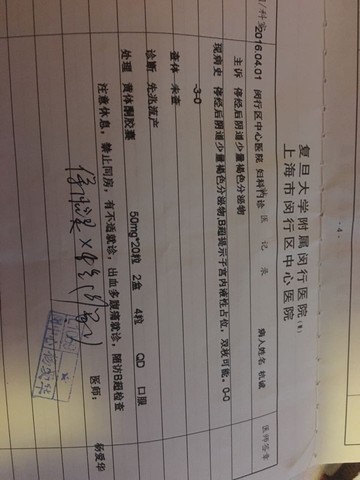 ·4·
复旦大学附属闵行医院
上海市闵行区中心医院
医 记 录 病人姓名 医师签章
2016.04.01 闵行区中心医院 妇科门诊
主诉 停经后阴道少量褐色分泌物
现病史 停经后阴道少量褐色分泌物,B超提示子宫内液性占位,双枚可能。0-0
-3-0
查体 未查
诊断 先兆流产
处理 黄体酮胶囊 50mg*20粒 2盒 4粒 QD 口服
注意休息,禁止同房,有不适就诊,出血多腹痛就诊,随访B超检查
医师: 杨爱华